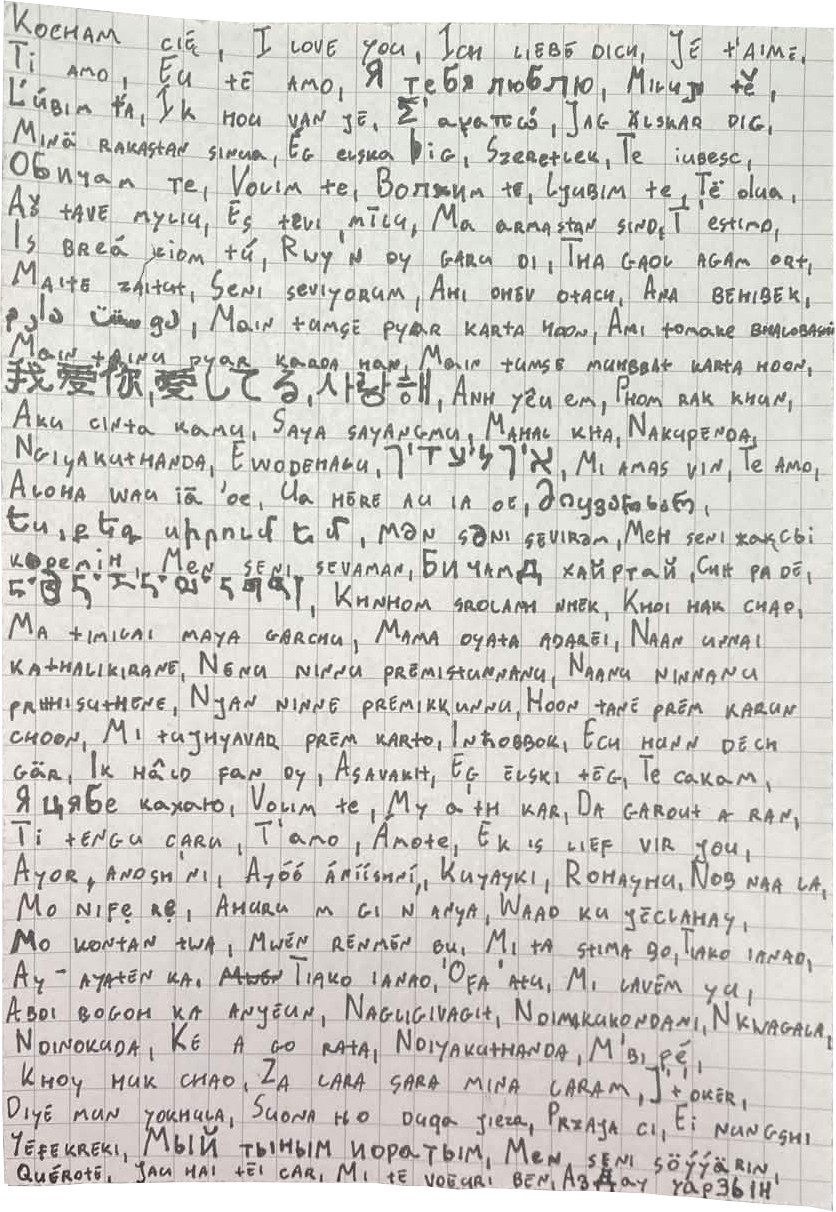 KOCHAM CIĘ, I LOVE YOU, ICH LIEBE DICH, JE T'AIME,
TI AMO, EU TE AMO, Я ТЕБЯ ЛЮБЛЮ, MILUJI TĚ,
L'ÚBIM ŤA, IK HOU VAN JE, Σ'αγαπώ, JAG ÄLSKAR DIG,
MINÄ RAKASTAN SINUA, ÉG ELSKA ÞIG, SZERETLEK, TE IUBESC,
ОБИЧАМ ТЕ, VOLIM TE, ВОЛИМ ТЕ, LJUBIM TE, TË DUA,
AŠ TAVE MYLIU, ES TEVI MĪLU, MA ARMASTAN SIND, T'ESTIMO,
IS BREÁ LIOM TÚ, RWY'N DY GARU DI, THA GAOL AGAM ORT,
MAITE ZAITUT, SENI SEVIYORUM, ANI OHEV OTACH, ANA BEHIBEK,
MAIN TUMSE PYAR KARTA HOON, AMI TOMAKE BHALOBASHI
MAIN TAINU PYAR KARDA HAN, MAIN TUMSE MUHBBAT KARTA HOON,
我愛你, 愛してる, 사랑해, ANH YÊU EM, PHOM RAK KHUN,
AKU CINTA KAMU, SAYA SAYANGMU, MAHAL KHA, NAKUPENDA,
NGIYAKUTHANDA, EWODEHALU, MI AMAS VIN, TE AMO,
ALOHA WAU IĀ 'OE, UA HERE AU IA OE, მიყვარხარ,
ես, քեզ սիրում եմ, MƏN SƏNI SEVIRƏM, МЕН SENI ЖАҚСЫ
КӨРЕМІН, MEN SENI SEVAMAN, БИ ЧАМД ХАЙРТАЙ, СИН PA DĒ,
KHNHOM SROLANH NHEK, KHOI HAK CHAO,
MA TIMILAI MAYA GARCHU, MAMA OYATA ADAREI, NAAN UNNAI
KATHALIKIRANE, NENU NINNU PREMISTUNNANU, NAANU NINNANU
PRIHISUTHENE, NJAN NINNE PREMIKKUNNU, HOON TANE PREM KARUN
CHOON, MI TUJHYAVAR PREM KARTO, INĦOBBOK, ECH HUNN DECH
GÄR, IK HÂLD FAN DY, ASAVAKIT, EG ELSKI TEG, TE CAKAM,
Я ЦЯБЕ КАХАЮ, VOLIM TE, MY A'TH KAR, DA GAROUT A RAN,
TI TENGU CARU, T'AMO, ÁMOTE, EK IS LIEF VIR YOU,
AYOR ANOSH'NI, AYÓÓ ÁNÍÍSHNÍ, KUYAYKI, ROHAYHU, NOB NAA LA,
MO NIFẸ RẸ, AHURU M GI N'ANYA, WAAD KU JECLAHAY,
MO KONTAN TWA, MWEN RENMEN BU, MI TA STIMA BO, TIAKO IANAO,
AY-AYATEN KA, TIAKO IANAO, 'OFA 'ATU, MI LAVEM YU,
ABDI BOGOM KA ANYEUN, NAGLIGIVAGIT, NDIMAKUKONDANI, NKWAGALA,
NDINOKUDA, KE A GO RATA, NDIYAKUTHANDA, M'BI FÉ,
KHOY HUK CHAO, ZA LARA SARA MINA LARAM, J'T'OKER,
DIYĒ MUN YOKHULA, SUONA HO DUQA JIEZA, PRZAJA CI, EI NUNGSHI
YEFEKREKI, МЫЙ ТЫНЫМ ЙОРАТЫМ, MEN SENI SÖÝÝÄRIN,
QUÉROTE, JAU HAI TEI CAR, MI TE VOEURI BEN, АЗ ДАУ УАРЗЫН